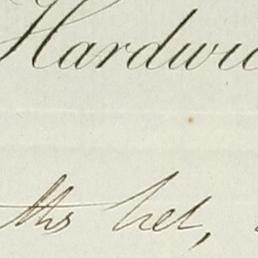 Hardwic
ths let,